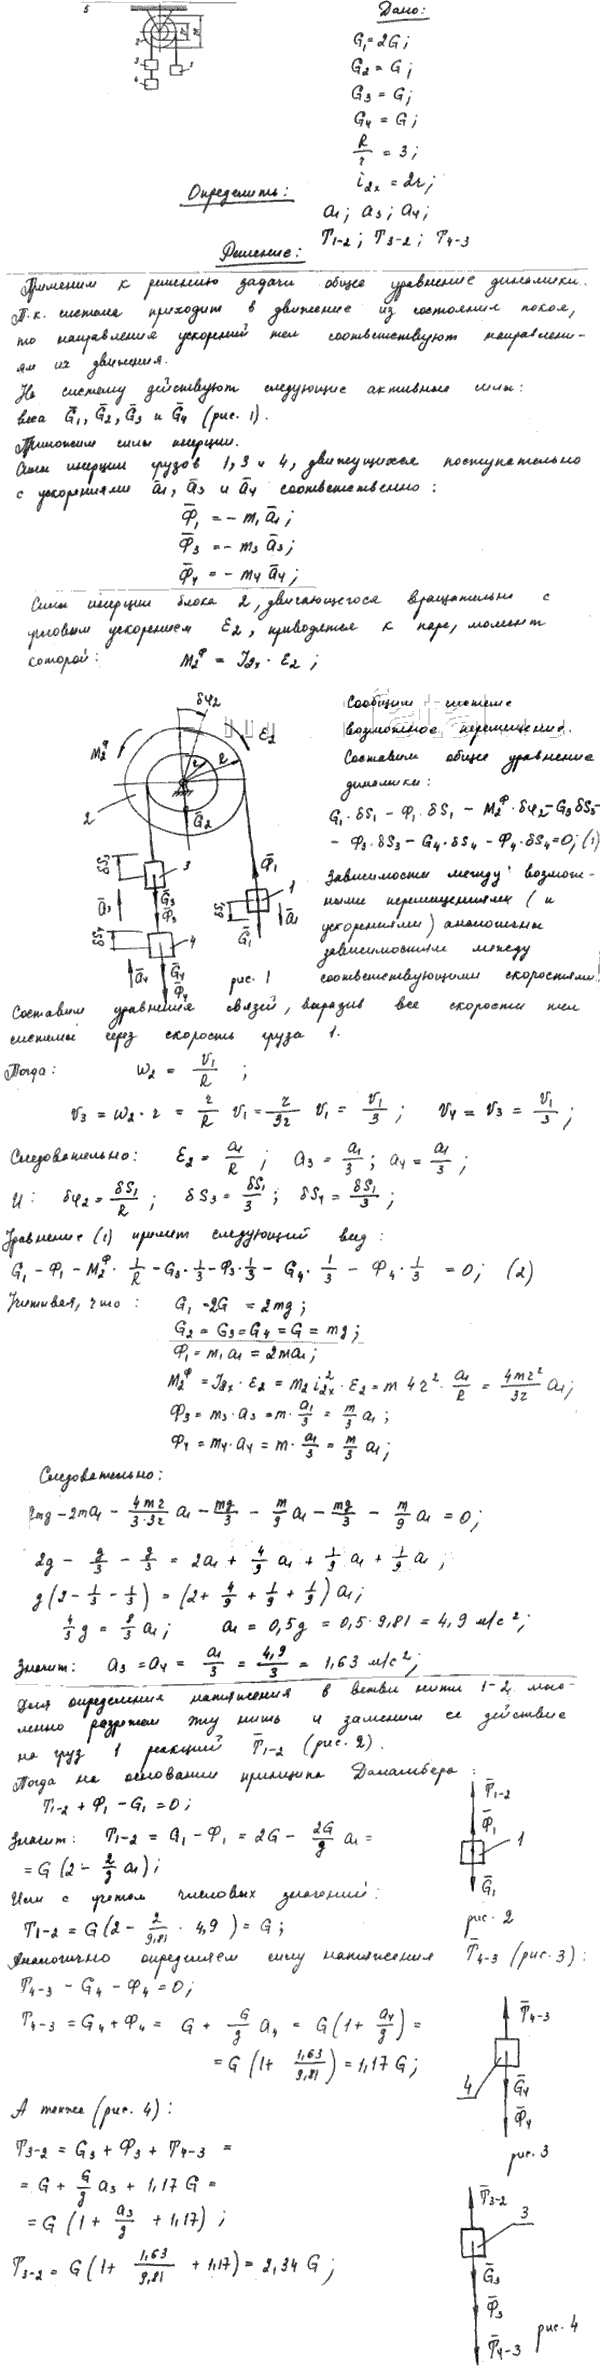 5
Дано:
G₁=2G;
G₂ = G;
G₃ = G;
G₄ = G;
R/r = 3;
i₂ₓ = 2r;
Определить:
a₁; a₃; a₄;
T₁₋₂; T₃₋₂; T₄₋₃
Решение:
Применим к решению задачи общее уравнение динамики.
Т.к. система приходит в движение из состояния покоя,
то направления ускорений тел соответствуют направлени-
ям их движения.
На систему действуют следующие активные силы:
веса G̅₁, G̅₂, G̅₃ и G̅₄ (рис. 1).
Приложим силы инерции.
Силы инерции грузов 1, 3 и 4, движущихся поступательно
с ускорениями a̅₁, a̅₃ и a̅₄ соответственно:
Φ̅₁ = - m₁ a̅₁;
Φ̅₃ = - m₃ a̅₃;
Φ̅₄ = - m₄ a̅₄;
Силы инерции блока 2, двигающегося вращательно с
угловым ускорением ε₂, приводятся к паре, момент
которой: M₂ᶲ = J₂ₓ · ε₂;
δφ₂
M₂ᶲ
ε₂
r
R
2
G̅₂
3
1
4
δS₃
δS₄
δS₁
a̅₃
a̅₄
a̅₁
G̅₃
Φ̅₃
G̅₄
Φ̅₄
Φ̅₁
G̅₁
рис. 1
Сообщим системе
возможное перемещение.
Составим общее уравнение
динамики:
G₁·δS₁ - Φ₁·δS₁ - M₂ᶲ·δφ₂ - G₃·δS₃ -
- Φ₃·δS₃ - G₄·δS₄ - Φ₄·δS₄=0; (1)
Зависимости между возмож-
ными перемещениями (и
ускорениями) аналогичны
зависимостям между
соответствующими скоростями.
Составим уравнения связей, выразив все скорости тел
системы через скорость груза 1.
Тогда: ω₂ = V₁/R ;
V₃ = ω₂·r = r/R V₁ = r/3r V₁ = V₁/3 ; V₄ = V₃ = V₁/3 ;
Следовательно: ε₂ = a₁/R ; a₃ = a₁/3 ; a₄ = a₁/3 ;
И: δφ₂ = δS₁/R ; δS₃ = δS₁/3 ; δS₄ = δS₁/3 ;
Уравнение (1) примет следующий вид:
G₁ - Φ₁ - M₂ᶲ · 1/R - G₃·1/3 - Φ₃·1/3 - G₄·1/3 - Φ₄·1/3 = 0; (2)
Учитывая, что: G₁ = 2G = 2mg;
G₂ = G₃ = G₄ = G = mg;
Φ₁ = m₁a₁ = 2ma₁;
M₂ᶲ = J₂ₓ·ε₂ = m₂ i₂ₓ²·ε₂ = m 4r²· a₁/R = 4mr²/3r a₁;
Φ₃ = m₃·a₃ = m· a₁/3 = m/3 a₁;
Φ₄ = m₄·a₄ = m· a₁/3 = m/3 a₁;
Следовательно:
2mg - 2ma₁ - 4mr/3·3r a₁ - mg/3 - m/9 a₁ - mg/3 - m/9 a₁ = 0;
2g - g/3 - g/3 = 2a₁ + 4/9 a₁ + 1/9 a₁ + 1/9 a₁ ;
g(2 - 1/3 - 1/3) = (2 + 4/9 + 1/9 + 1/9) a₁;
4/3 g = 8/3 a₁; a₁ = 0,5g = 0,5·9,81 = 4,9 м/с²;
Значит: a₃ = a₄ = a₁/3 = 4,9/3 = 1,63 м/с²;
Для определения натяжения в ветви нити 1-2 мыс-
ленно разрежем эту нить и заменим её действие
на груз 1 реакцией T̅₁₋₂ (рис. 2).
Тогда на основании принципа Даламбера:
T₁₋₂ + Φ₁ - G₁ = 0;
Значит: T₁₋₂ = G₁ - Φ₁ = 2G - 2G/g a₁ =
= G (2 - 2/g a₁);
Или с учетом числовых значений:
T₁₋₂ = G(2 - 2/9,81 · 4,9) = G;
T̅₁₋₂
Φ̅₁
1
G̅₁
рис. 2
Аналогично определяем силу натяжения T̅₄₋₃ (рис. 3):
T₄₋₃ - G₄ - Φ₄ = 0;
T₄₋₃ = G₄ + Φ₄ = G + G/g a₄ = G(1 + a₄/g) =
= G (1+ 1,63/9,81) = 1,17 G;
T̅₄₋₃
4
G̅₄
Φ̅₄
рис. 3
А также (рис. 4):
T₃₋₂ = G₃ + Φ₃ + T₄₋₃ =
= G + G/g a₃ + 1,17 G =
= G (1 + a₃/g + 1,17) ;
T₃₋₂ = G(1+ 1,63/9,81 + 1,17) = 2,34 G;
T̅₃₋₂
3
G̅₃
Φ̅₃
T̅₄₋₃
рис. 4